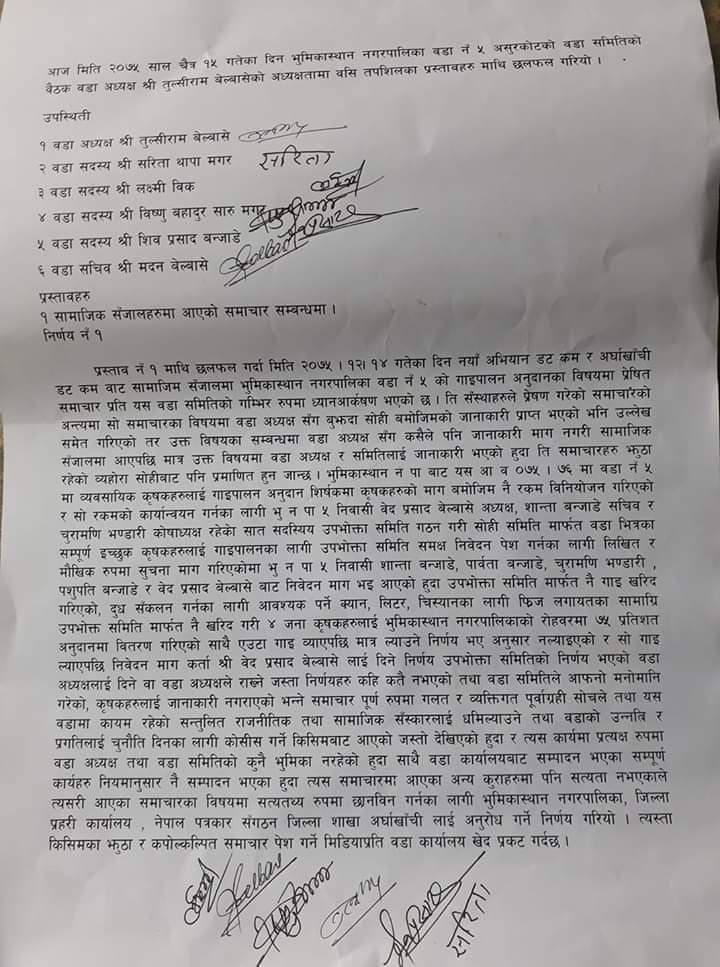 आज मिति २०७५ साल चैत्र १५ गतेका दिन भुमिकास्थान नगरपालिका वडा नँ ५ असुरकोटको वडा समितिको
बैठक वडा अध्यक्ष श्री तुल्सीराम बेल्बासेको अध्यक्षतामा वसि तपशिलका प्रस्तावहरु माथि छलफल गरियो ।
उपस्थिती
१ वडा अध्यक्ष श्री तुल्सीराम बेल्बासे
२ वडा सदस्य श्री सरिता थापा मगर सरिता
३ वडा सदस्य श्री लक्ष्मी विक
४ वडा सदस्य श्री विष्णु बहादुर सारु मगर
५ वडा सदस्य श्री शिव प्रसाद बन्जाडे
६ वडा सचिव श्री मदन बेल्बासे
प्रस्तावहरु
१ सामाजिक सँजालहरुमा आएको समाचार सम्बन्धमा ।
निर्णय नँ १
प्रस्ताव नँ १ माथि छलफल गर्दा मिति २०७५ । १२। १४ गतेका दिन नयाँ अभियान डट कम र अर्घाखाँची
डट कम वाट सामाजिम सँजालमा भुमिकास्थान नगरपालिका वडा नँ ५ को गाइपालन अनुदानका विषयमा प्रेषित
समाचार प्रति यस वडा समितिको गम्भिर रुपमा ध्यानआर्कषण भएको छ । ति सँस्थाहरुले प्रेषण गरेको समाचारको
अन्त्यमा सो समाचारका विषयमा वडा अध्यक्ष सँग बुझ्दा सोही बमोजिमको जानाकारी प्राप्त भएको भनि उल्लेख
समेत गरिएको तर उक्त विषयका सम्बन्धमा वडा अध्यक्ष सँग कसैले पनि जानाकारी माग नगरी सामाजिक
सँजालमा आएपछि मात्र उक्त विषयमा वडा अध्यक्ष र समितिलाई जानाकारी भएको हुदा ति समाचारहरु झुठा
रहेको व्यहोरा सोहीबाट पनि प्रमाणित हुन जान्छ । भुमिकास्थान न पा बाट यस आ व ०७५ । ७६ मा वडा नँ ५
मा व्यवसायिक कृषकहरुलाई गाइपालन अनुदान शिर्षकमा कृषकहरुको माग बमोजिम नै रकम विनियोजन गरिएको
र सो रकमको कार्यान्वयन गर्नका लागी भु न पा ५ निवासी वेद प्रसाद बेल्बासे अध्यक्ष, शान्ता बन्जाडे सचिव र
चुरामणि भण्डारी कोषाध्यक्ष रहेको सात सदस्यिय उपभोक्ता समिति गठन गरी सोही समिति मार्फत वडा भित्रका
सम्पूर्ण इच्छुक कृषकहरुलाई गाइपालनका लागी उपभोक्ता समिति समक्ष निवेदन पेश गर्नका लागी लिखित र
मौखिक रुपमा सुचना माग गरिएकोमा भु न पा ५ निवासी शान्ता बन्जाडे, पार्वता बन्जाडे, चुरामणि भण्डारी ,
पशुपति बन्जाडे र वेद प्रसाद बेल्बासे बाट निवेदन माग भइ आएको हुदा उपभोक्ता समिति मार्फत नै गाइ खरिद
गरिएको, दुध संकलन गर्नका लागी आवश्यक पर्ने क्यान, लिटर, चिस्यानका लागी फ्रिज लगायतका सामाग्रि
उपभोक्त समिति मार्फत नै खरिद गरी ४ जना कृषकहरुलाई भुमिकास्थान नगरपालिकाको रोहवरमा ७५ प्रतिशत
अनुदानमा वितरण गरिएको साथै एउटा गाइ व्याएपछि मात्र ल्याउने निर्णय भए अनुसार नल्याइएको र सो गाइ
ल्याएपछि निवेदन माग कर्ता श्री वेद प्रसाद बेल्बासे लाई दिने निर्णय उपभोक्ता समितिको निर्णय भएको वडा
अध्यक्षलाई दिने वा वडा अध्यक्षले राख्ने जस्ता निर्णयहरु कहि कतै नभएको तथा वडा समितिले आफनो मनोमानि
गरेको, कृषकहरुलाई जानाकारी नगराएको भन्ने समाचार पूर्ण रुपमा गलत र व्यक्तिगत पूर्वाग्रही सोचले तथा यस
वडामा कायम रहेको सन्तुलित राजनीतिक तथा सामाजिक सँस्कारलाई धमिल्याउने तथा वडाको उन्नति र
प्रगतिलाई चुनौति दिनका लागी कोसीस गर्ने किसिमबाट आएको जस्तो देखिएको हुदा र त्यस कार्यमा प्रत्यक्ष रुपमा
वडा अध्यक्ष तथा वडा समितिको कुनै भुमिका नरहेको हुदा साथै वडा कार्यालयबाट सम्पादन भएका सम्पूर्ण
कार्यहरु नियमानुसार नै सम्पादन भएका हुदा त्यस समाचारमा आएका अन्य कुराहरुमा पनि सत्यता नभएकाले
त्यसरी आएका समाचारका विषयमा सत्यतथ्य रुपमा छानविन गर्नका लागी भुमिकास्थान नगरपालिका, जिल्ला
प्रहरी कार्यालय , नेपाल पत्रकार संगठन जिल्ला शाखा अर्घाखाँची लाई अनुरोध गर्ने निर्णय गरियो । त्यस्ता
किसिमका झुठा र कपोल्कल्पित समाचार पेश गर्ने मिडियाप्रति वडा कार्यालय खेद प्रकट गर्दछ ।
सरिता